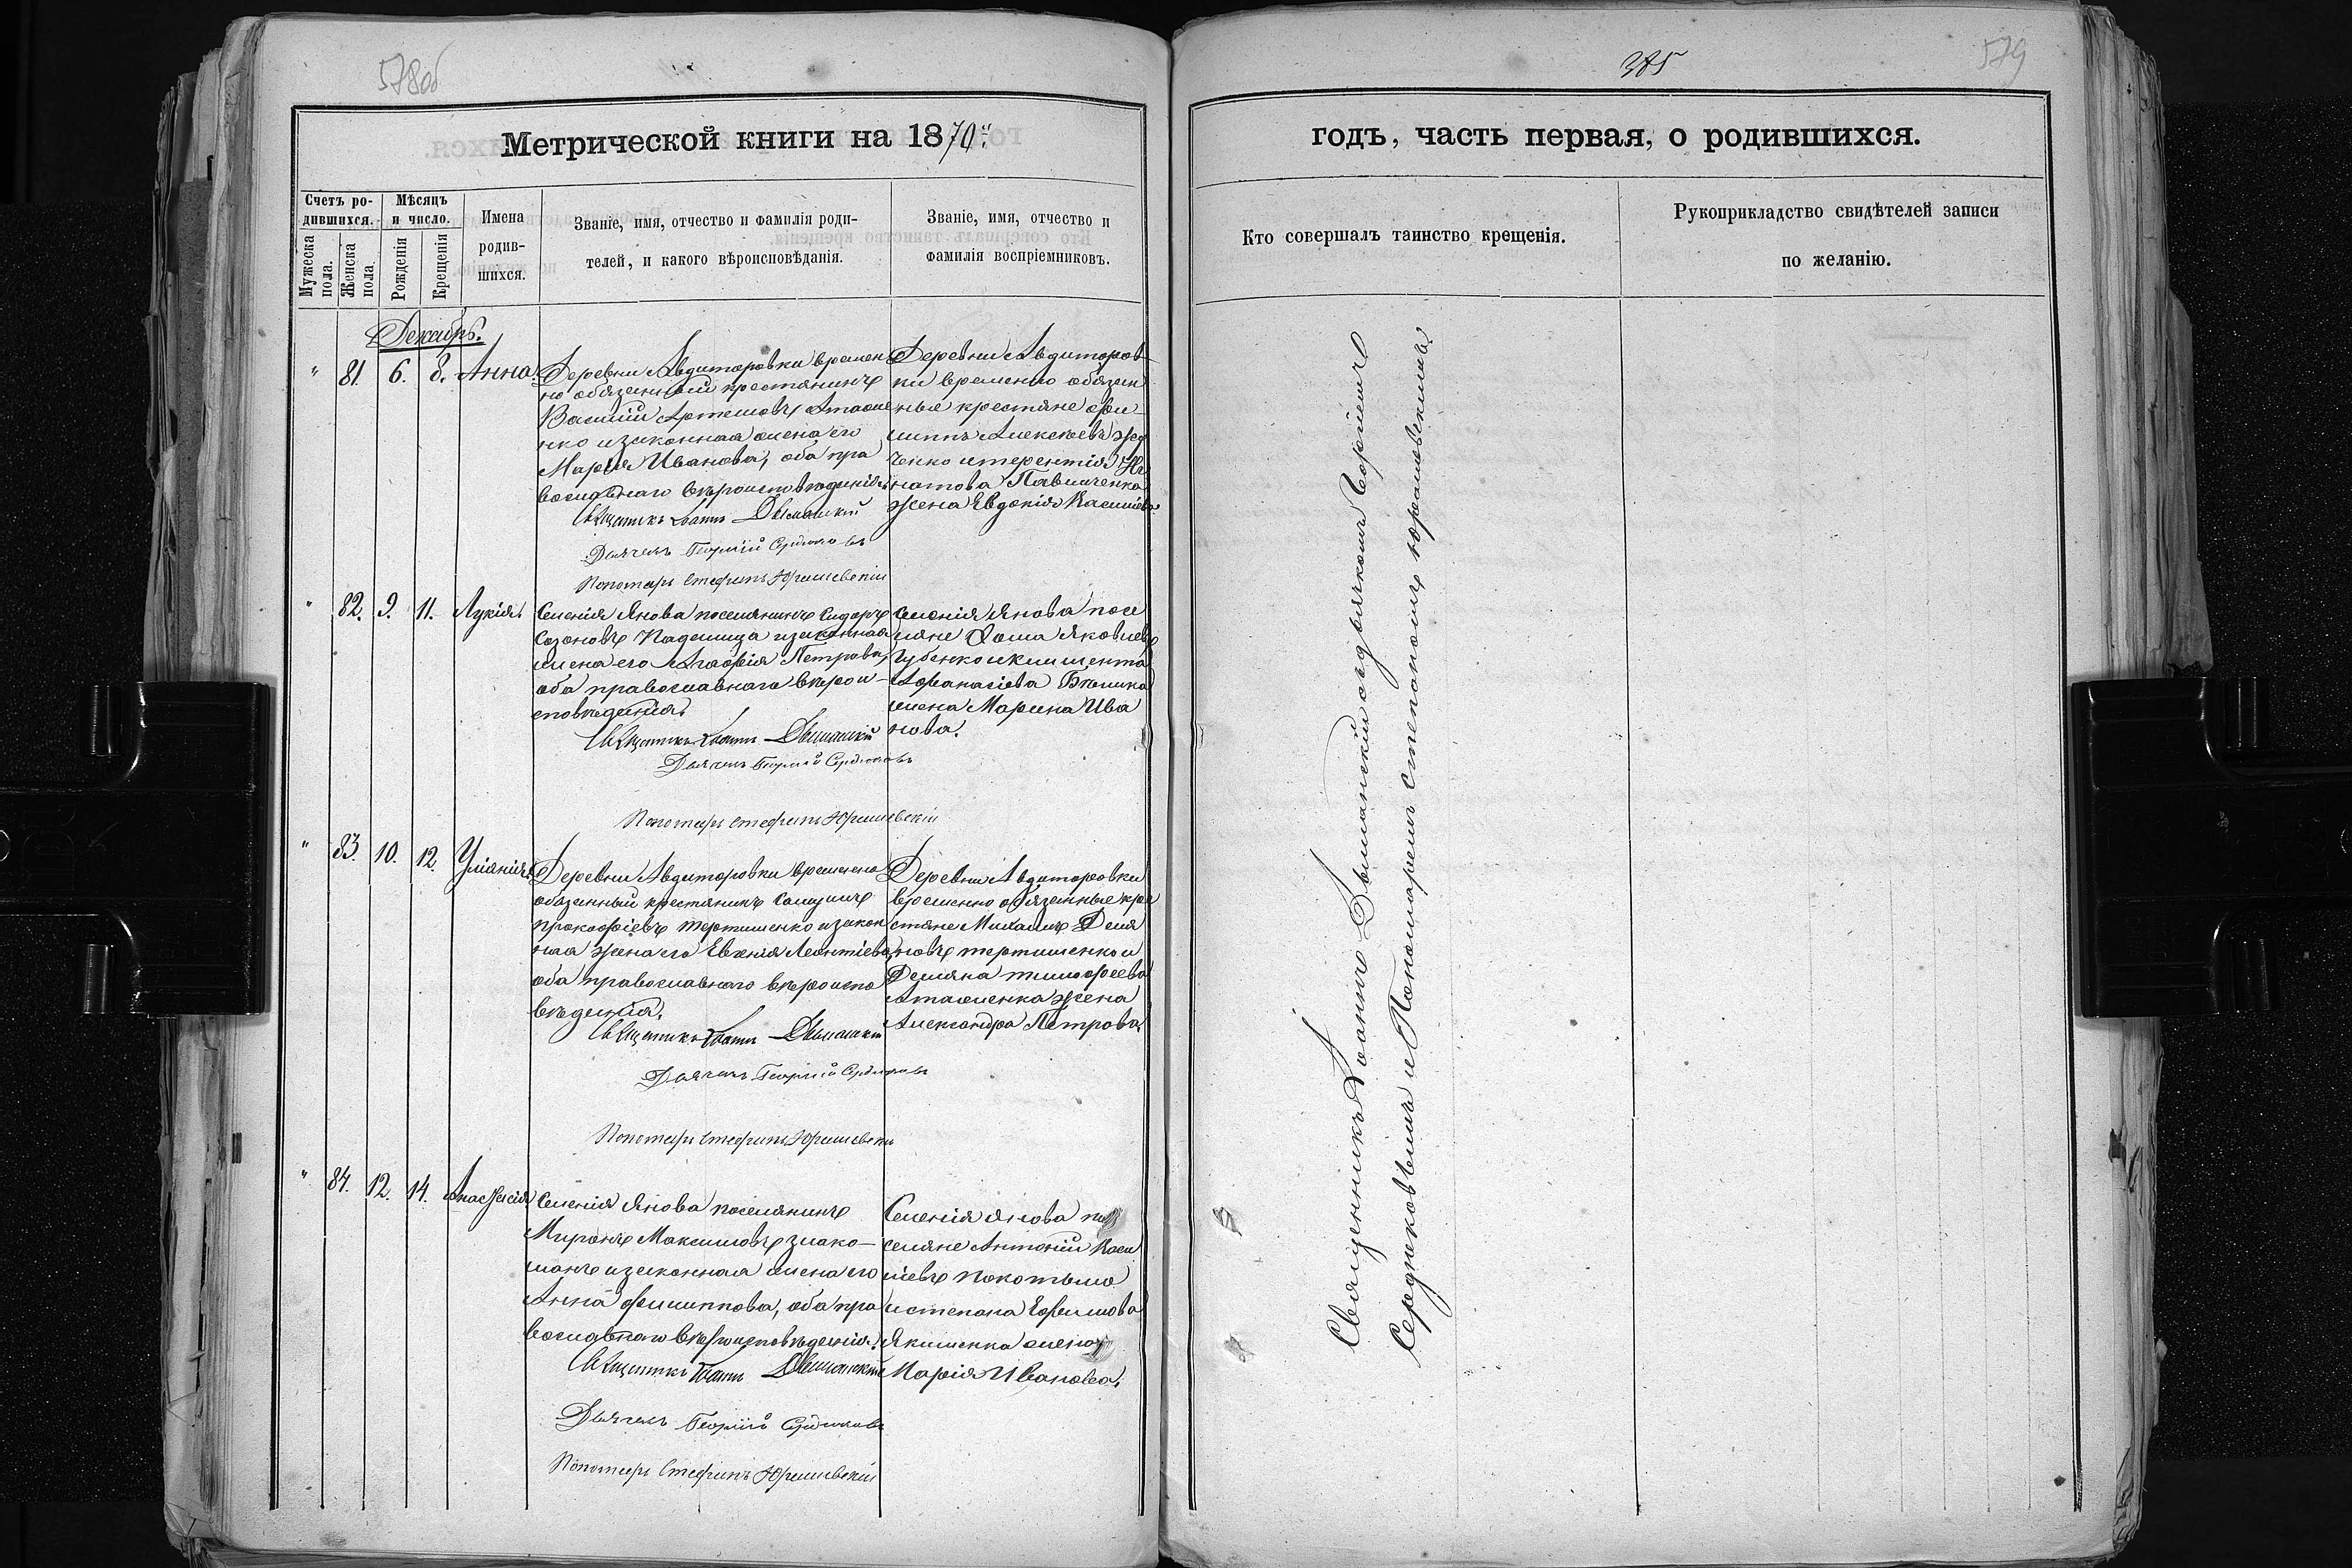 578об
Метрической книги на 1870й
Счетъ ро-
дившихся.
Мужеска пола.
Женска пола.
Мѣсяцъ
и число.
Рожденія
Крещенія
Имена
родив-
шихся.
Званіе, имя, отчество и фамилія роди-
телей, и какого вѣроисповѣданія.
Званіе, имя, отчество и
фамилія воспріемниковъ.
Декабрь.
" 81. 6. 8. Анна.
Деревни Авдиторовки времен
но обязенный крестянинъ
Василій Артемовъ
нко изаконная жена его
Марія Иванова, оба пра
вославнаго вѣроисповѣданія.
Священникъ Іоаннъ Дышанскій
Дьячекъ Георгій Сердюковъ
Пономарь Стефанъ Юрашевскій
Деревни Авдиторов
ки временно обязен
ные крестяне Фи-
липпъ Алексѣевъ
ченко итерентія
натова Павличенка
жена Евдокія Василіева
" 82. 9. 11. Лукія.
Селенія Янова поселянинъ Сидоръ
Созоновъ Паденица изаконная
жена его Агафія Петрова,
оба православнаго вѣрои-
сповѣданія.
Священникъ Іоаннъ Дышанскій
Дьячекъ Георгій Сердюковъ
Пономарь Стефанъ Юрашевскій
Селенія Янова посе
ляне Фома Яковлевъ
Губенко иклимента
Афанасіева Бѣлика
жена Марина Ива
нова.
" 83. 10. 12. Уліянія.
Деревни Авдиторовки временно
обязенный крестянинъ Самуилъ
Прокофіевъ Тертишенко изакон
ная жена его Евгенія Леонтіева,
оба православнаго вѣроиспо
вѣданія.
Священникъ Іоаннъ Дышанскій
Дьячекъ Георгій Сердюковъ
Пономарь Стефанъ Юрашевскій
Деревни Авдиторовки
временно обязенные кре
стяне Михаилъ Демя
новъ тертишенко и
Демяна тимофеева
жена
Александра Петрова
" 84. 12. 14. Анастасія
Селенія Янова поселянинъ
Миронъ Максимовъ
изаконная жена его
Анна филиппова, оба пра
вославнаго вѣроисповѣданія.
Священникъ Іоаннъ Дышанскій
Дьячекъ Георгій Сердюковъ
Пономарь Стефанъ Юрашевскій
Селенія Янова по
селяне Антоній Васи
ліевъ Покотыло
истепана Ефимова
Якименка жена
Марія Иванова.
385
579
годъ, часть первая, о родившихся.
Кто совершалъ таинство крещенія.
Рукоприкладство свидѣтелей записи
по желанію.
Священникъ Іоаннъ Дышанскій съ дьячкомъ Георгіемъ
Сердюковымъ и Пономаремъ Степаномъ Юрашевскимъ